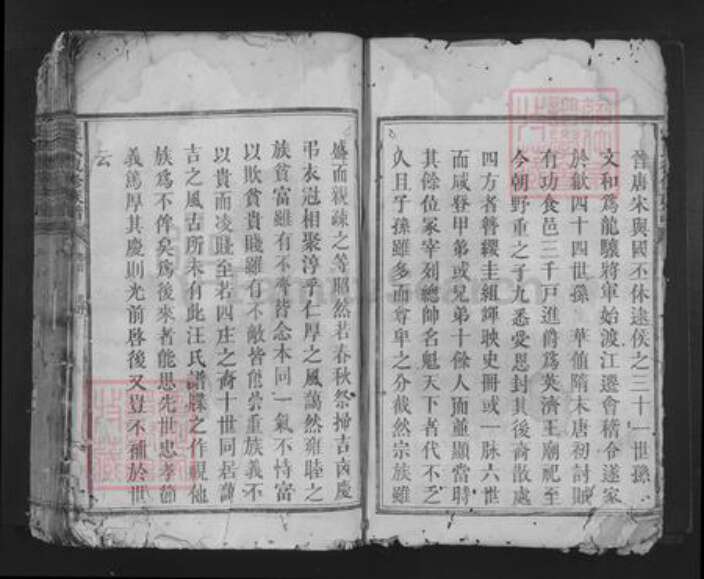 晉唐宋與國不休逮侯之三十一世孫
文和爲龍驤將軍始渡江遷會稽令遂家
於歙四十四世孫 華值隋末唐初討賊
有功食邑三千戸進爵爲英濟王廟祀至
今朝野重之子九悉受恩封其後裔散處
四方者簪纓圭組輝映史冊或一脉六世
而咸登甲第或兄弟十餘人而並顯當時
其餘位冢宰列總帥名魁天下者代不乏
人且子孫雖多而尊卑之分截然宗族雖
盛而親疎之等照然若春秋祭掃吉凶慶
弔衣冠相聚淳乎仁厚之風藹然雍睦之
族貧富雖有不齊皆念本同一氣不恃富
以欺貧貴賤雖有不敵皆能崇重族義不
以貴而凌賤至若四庄之裔十世同居藹
吉之風古所未有此汪氏譜牒之作視他
族爲不侔矣爲後來者能思先世忠孝節
義篤厚其慶則光前啓後又豈不補於世
云